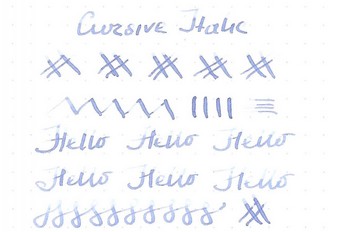 Cursive Italic
Hello Hello Hello
Hello Hello Hello